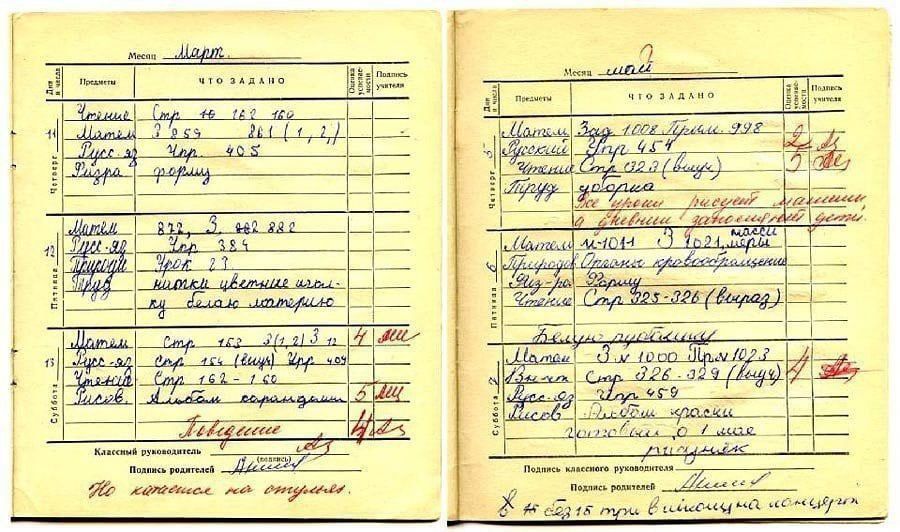 Месяц Март.
Дни и числа Предметы ЧТО ЗАДАНО Оценка успеваемости Подпись учителя
Четверг 11
Чтение Стр 162 160
Матем З 859 861 (1, 2,)
Русс-яз Упр. 405
Физра форму
Пятница 12
Матем 872, З, 882
Русс-яз Упр 384
Природ Урок 23
Труд нитки цветные игол-
ку белаю материю
Суббота 13
Матем Стр 153 3(1,2) З 12 4
Русс-яз Стр 154 (выуч) Упр 409
Чтение Стр 162-160
Рисов. Альбом карандаши 5
Поведение 4
Классный руководитель
(подпись)
Подпись родителей
Но катается на стульях.
Месяц май
Дни и числа Предметы ЧТО ЗАДАНО Оценка успеваемости Подпись учителя
Четверг 5
Матем Зад 1008 Прим. 998
Русский Упр 454 2
Чтение Стр 323 (выуч) 5
Труд уборка
Все уроки рисует машины,
а дневник заполняют дети.
Пятница 6
масси
Матем №1011 З 1021, меры
Природов Органы кровообращение
Физ-ра Форму
Чтение Стр 325-326 (выраз)
Белую рубашку
Суббота 7
Матем З № 1000 Прим 1023
Вн-чт Стр 326-329 (выуч) 4
Русс-яз Упр 459
Рисов Альбом краски
готовый о 1 мае
рисунёк
Подпись классного руководителя
Подпись родителей
в без 15 три в на концерт